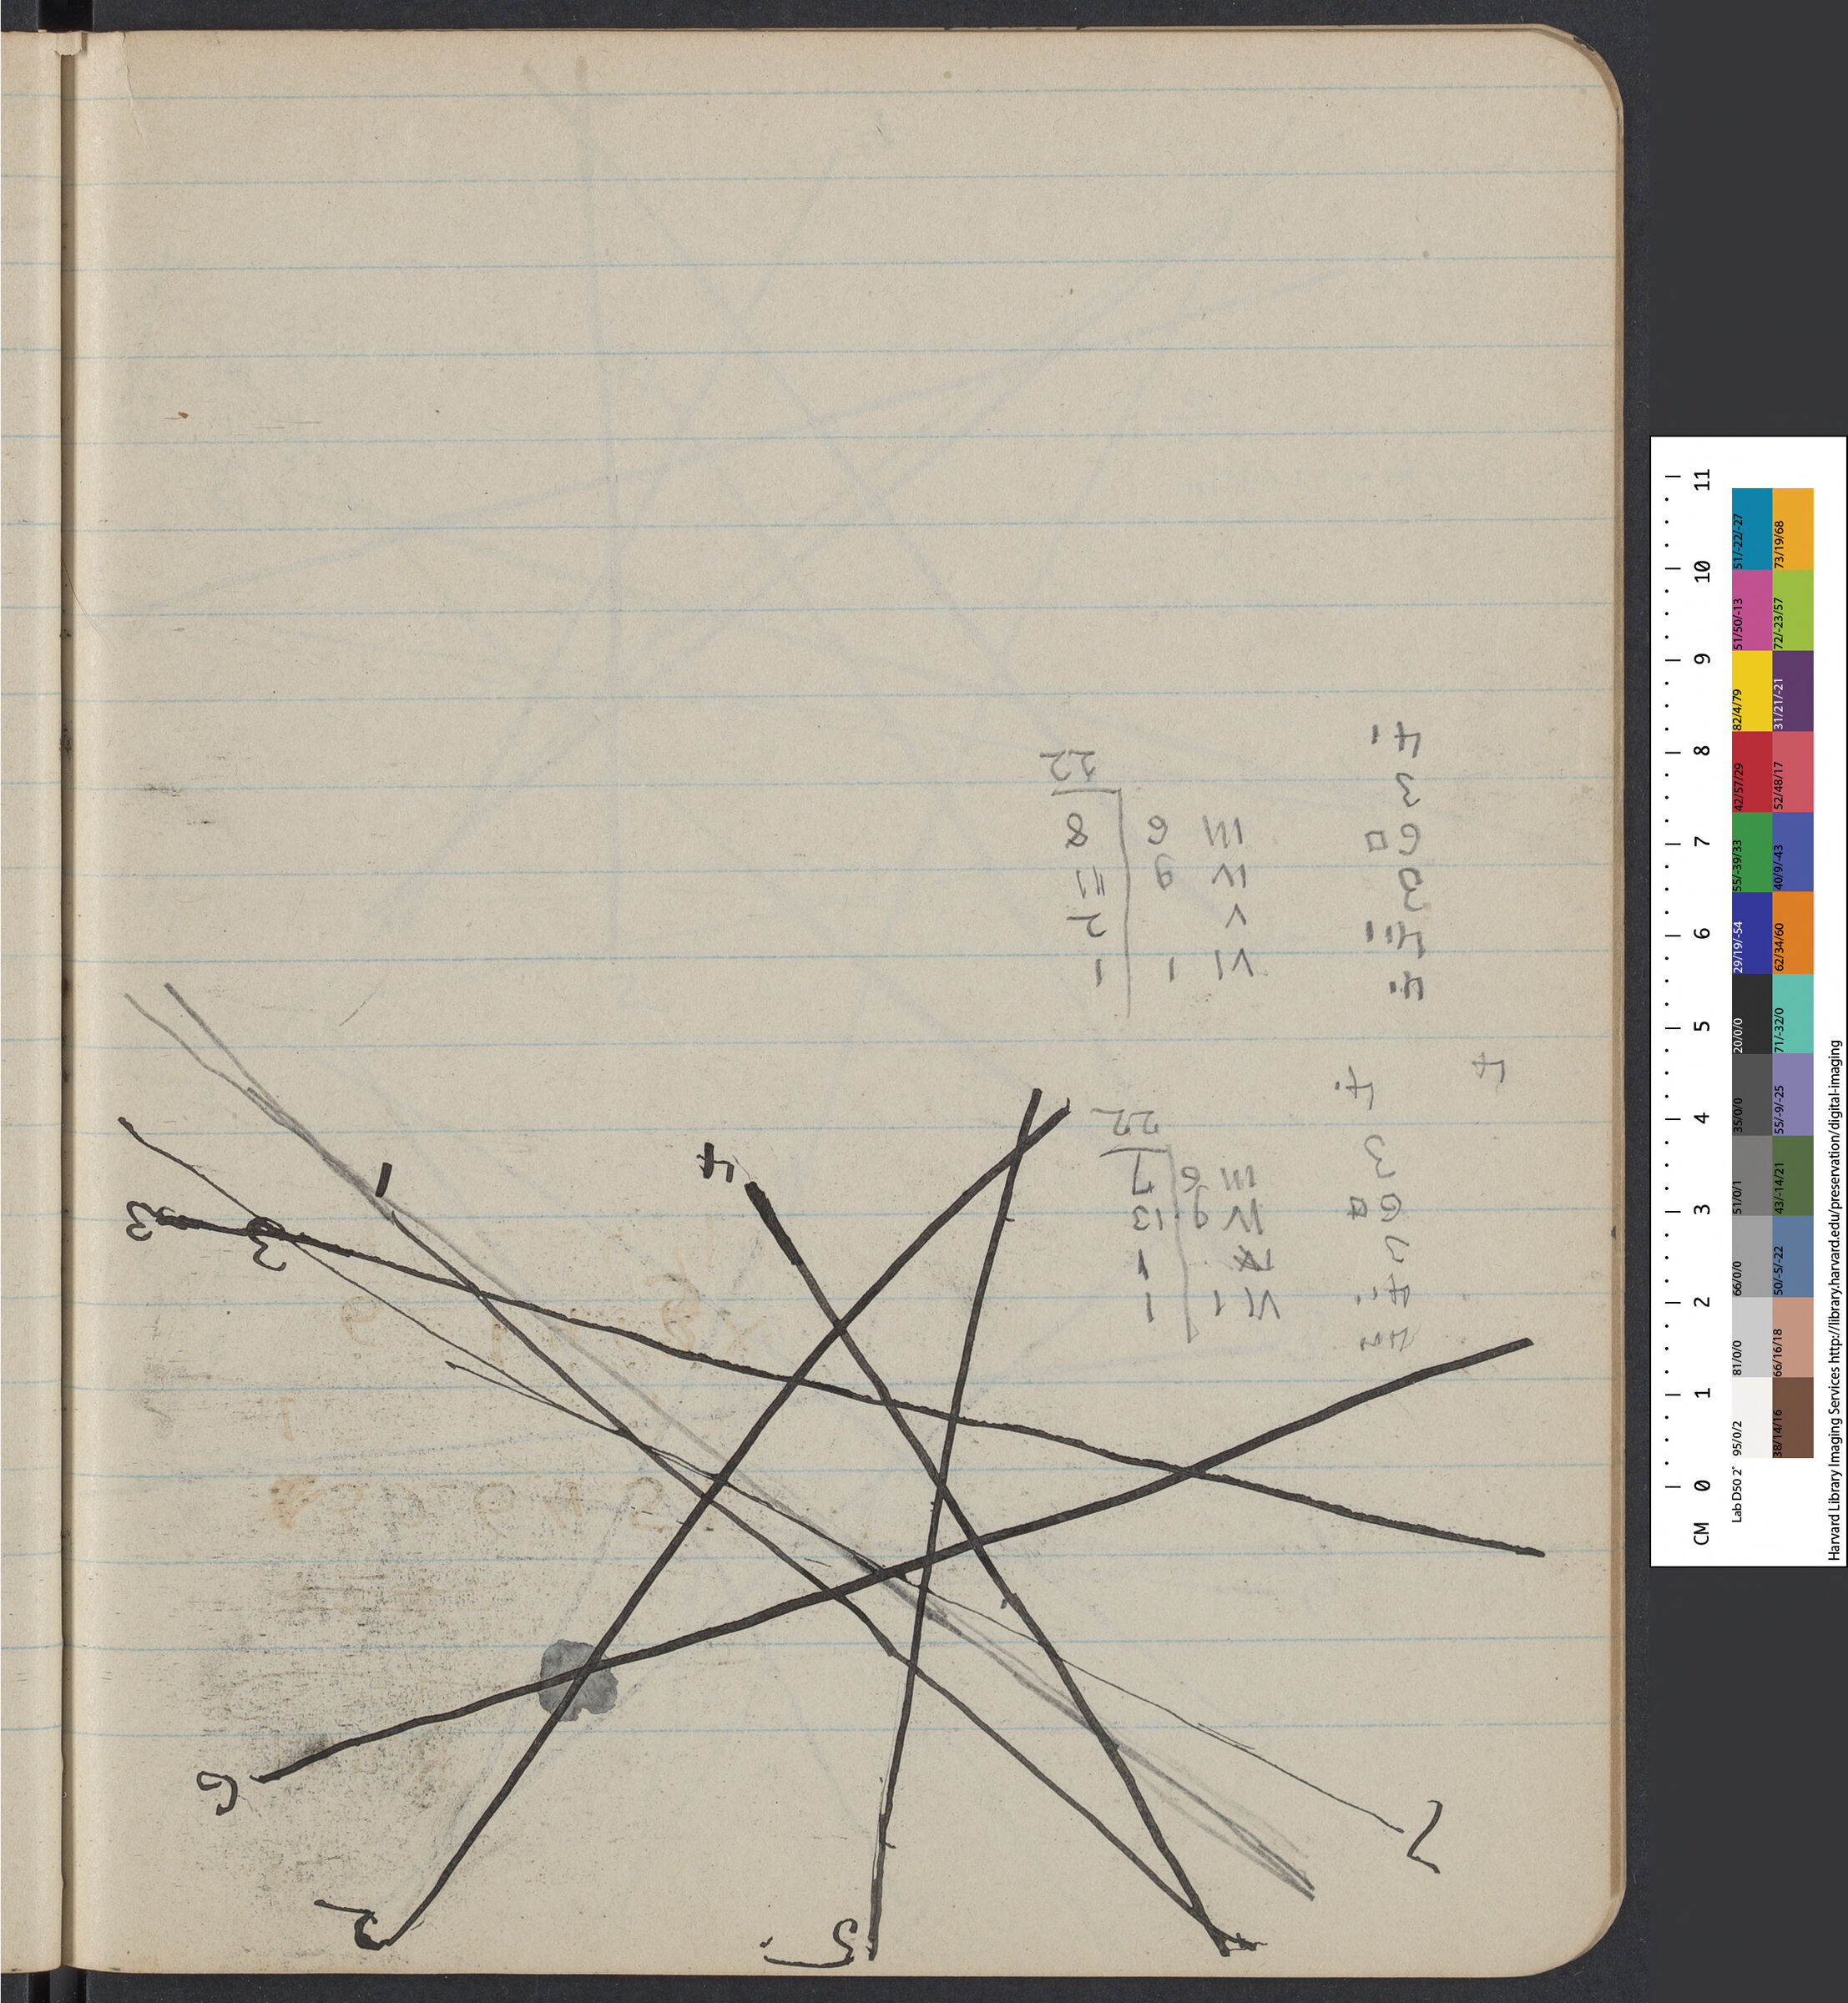 5
2
7
6
1
VI 1 1
IV 9 13
6 □
III 6 7
3
22
4
3
3
4
1
4
VI 1 1
V 2
IV 9 11
3
III 6 8
6 □
3
22
4
CM 0 1 2 3 4 5 6 7 8 9 10 11
Lab D50 2° 95/0/2 81/0/0 66/0/0 51/0/1 35/0/0 20/0/0 29/19/-54 55/-39/33 42/57/29 82/4/79 51/50/-13 51/-22/-27
38/14/16 66/16/18 50/-5/-22 43/-14/21 55/-9/-25 71/-32/0 62/34/60 40/9/-43 52/48/17 31/21/-21 72/-23/57 73/19/68
Harvard Library Imaging Services http://library.harvard.edu/preservation/digital-imaging